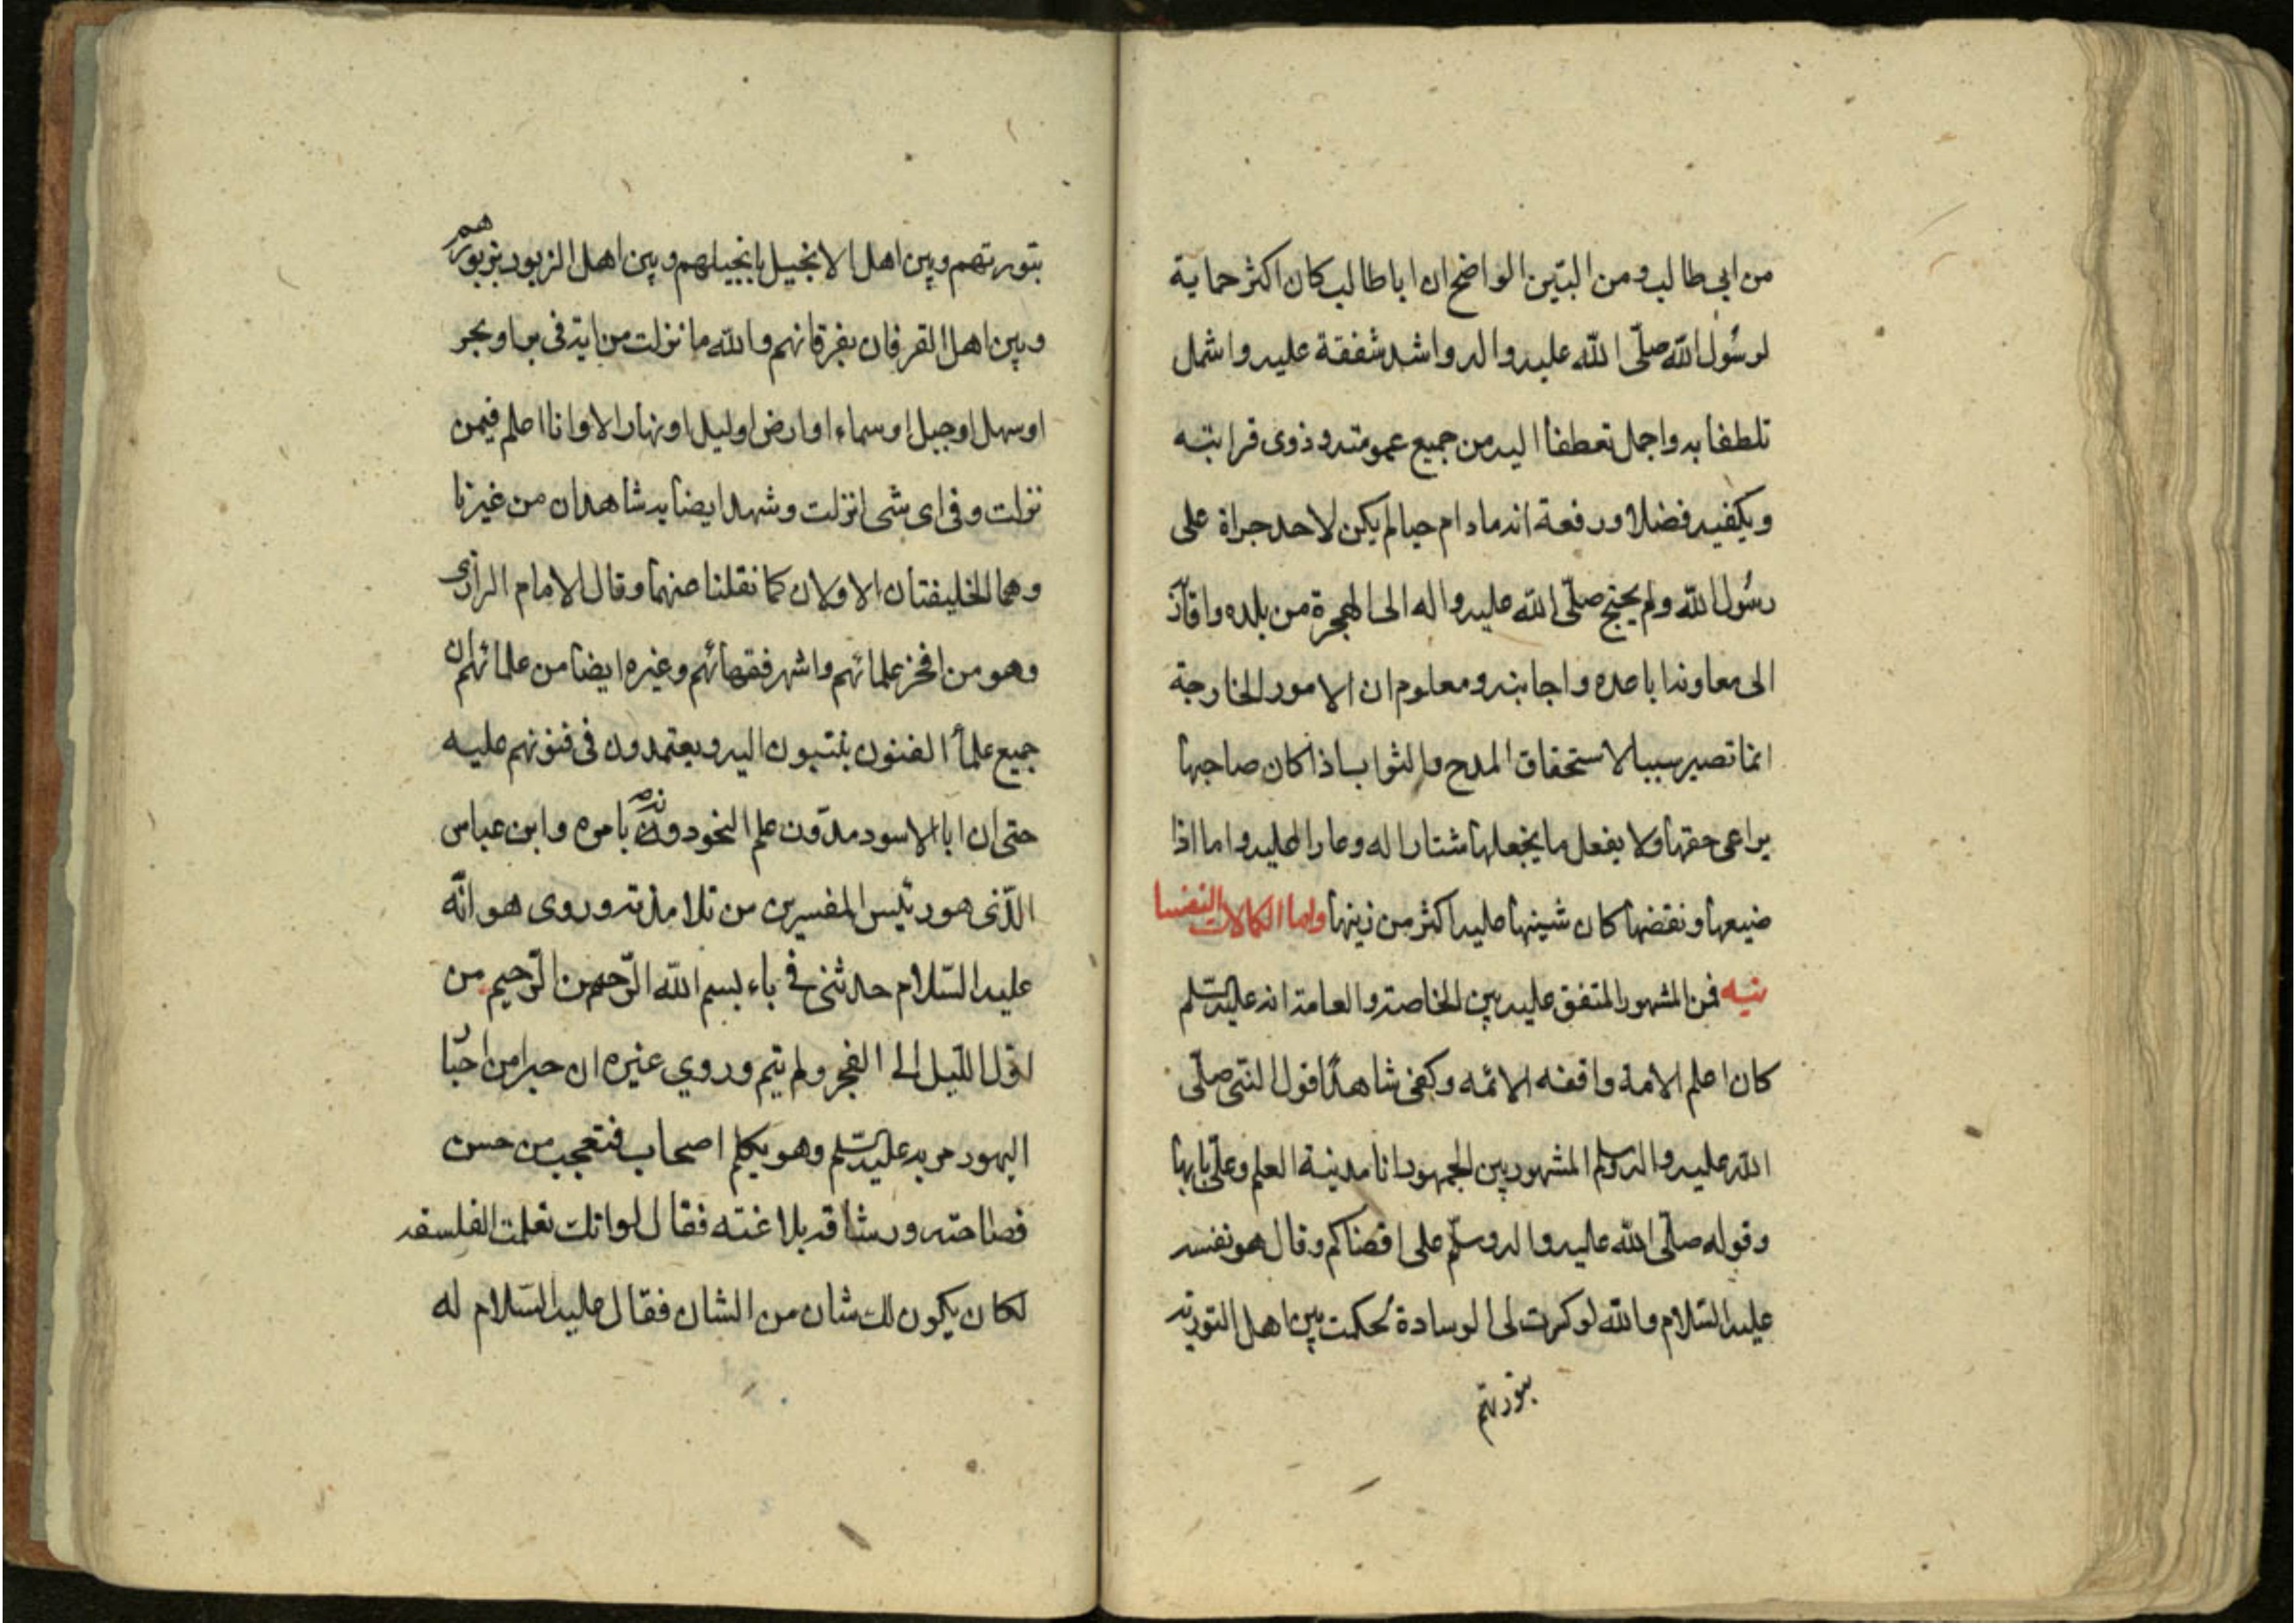 من ابي طالب ومن البيّن الواضح ان ابا طالب كان اكثر حماية
لرسُول الله صلّى الله عليه واله واشد شفقة عليه واشمل
تلطفا به واجمل تعطفا اليه من جميع عمومته وذوى قرابته
ويكفيه فضلا ورفعة انه مادام حيا لم يكن لاحد جراة على
رسُول الله ولم يحتج صلّى الله عليه واله الى الهجرة من بلده
الى معاونة اباعده واجانبه ومعلوم ان الامور الخارجة
انما تصير سببا لاستحقاق المدح والثواب اذا كان صاحبها
يراعى حقها ولا يفعل ما يجعلها شنارا له وعارا عليه واما اذا
ضيعها ونقضها كان شينها عليه اكثر من زينها واما الكمالات النفسا
نيه فمن المشهور المتفق عليه بين الخاصة والعامة انه عليه السّلم
كان اعلم الامة وافقه الائمه وكفى شاهدًا قول النبى صلّى
الله عليه واله وسلم المشهور بين الجمهور انا مدينة العلم وعلىّ بابها
وقوله صلّى الله عليه واله وسلّم على اقضاكم وقال هو نفسه
عليه السّلام والله لو كسرت لى الوسادة لحكمت بين اهل التورية
بتوريتهم
بتوريتهم وبين اهل الانجيل بانجيلهم وبين اهل الزبور بزبورهم
وبين اهل الفرقان بفرقانهم والله ما نزلت من اية فى بر او بحر
او سهل او جبل او سماء او ارض او ليل او نهار الا وانا اعلم فيمن
نزلت وفى اى شى انزلت وشهد ايضا به شاهدان من غيرنا
وهما الخليفتان الاولان كما نقلنا عنهما وقال الامام الرازى
وهو من افخر علمائهم واشهر فقهائهم وغيره ايضا من علمائهم ان
جميع علمأ الفنون ينتسبون اليه ويعتمدون فى فنونهم عليه
حتى ان ابا الاسود مدوّن علم النحو دونه بامره وابن عباس
الّذى هو رئيس المفسرين من تلامذته وروى هو انّه
عليه السّلام حدثنى فى باء بسم الله الرّحمن الرّحيم من
اوّل اللّيل الى الفجر ولم يتم وروي غيره ان حبرا من احبار
اليهود مر به عليه السّلم وهو يكلم اصحابه فتعجب من حسن
فصاحته ورشاقة بلاغته فقال لو انك تعلمت الفلسفه
لكان يكون لك شان من الشان فقال عليه السّلام له